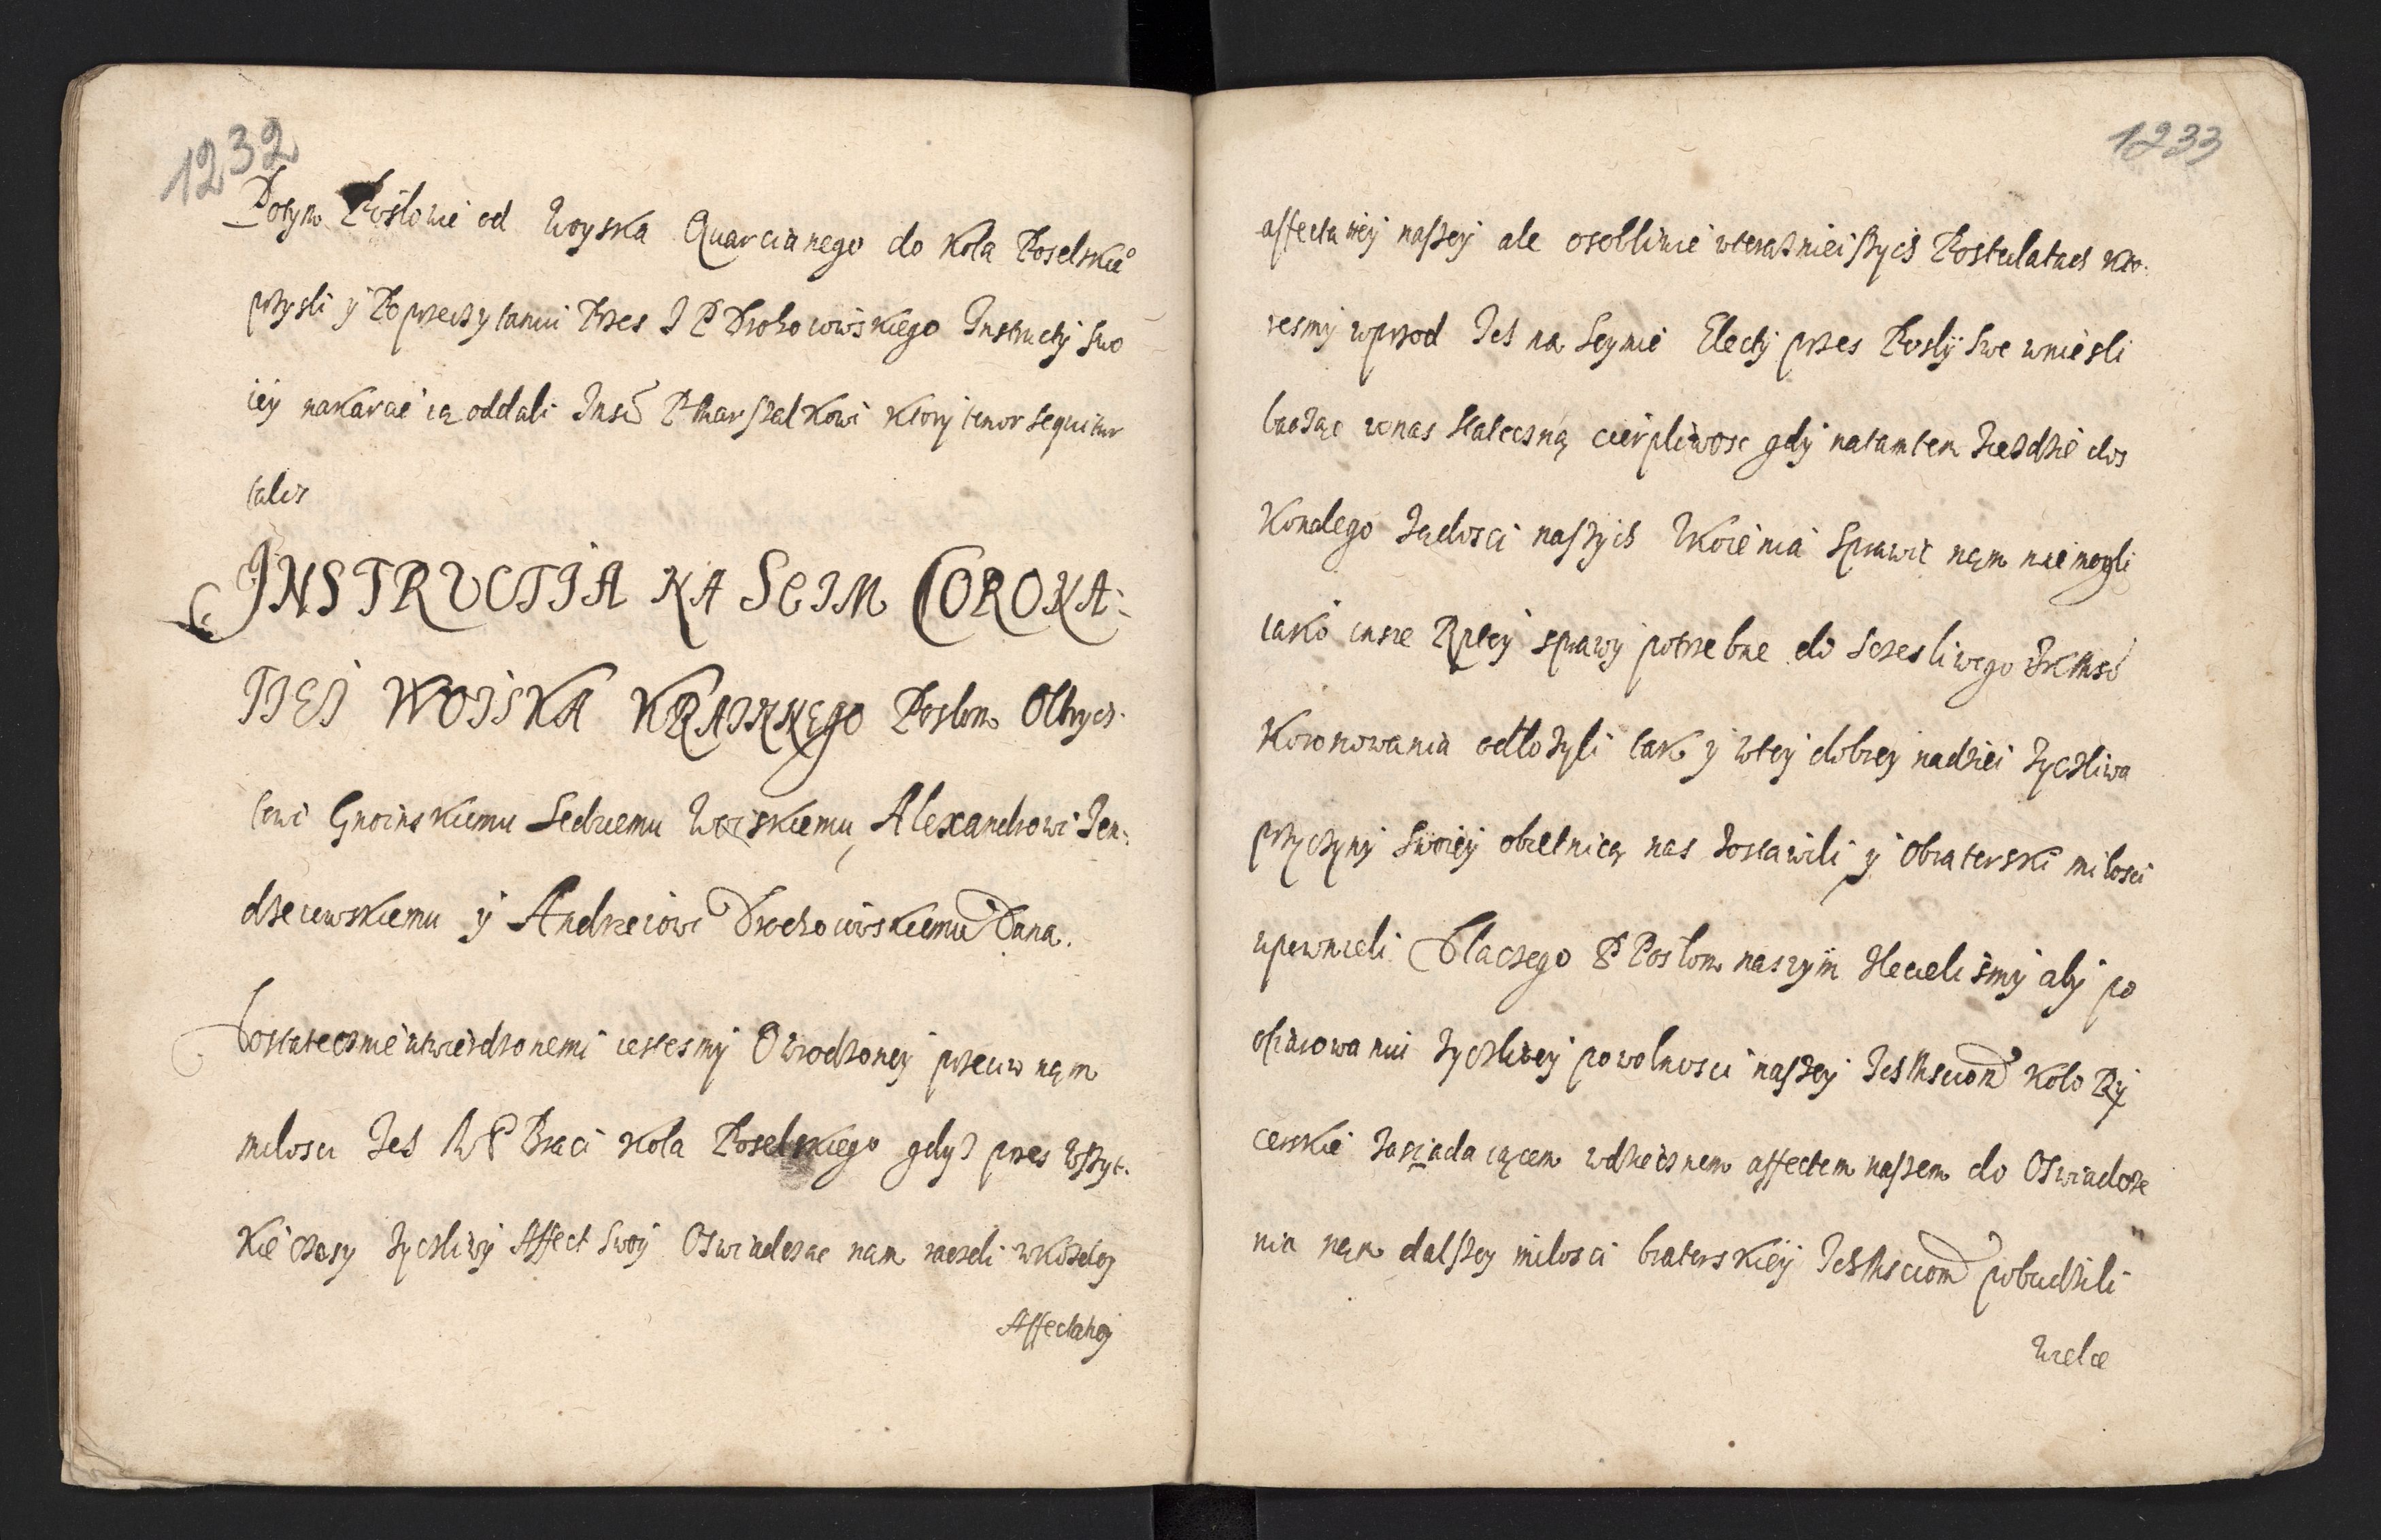 1232
Potym Posłowie od Woyska Quarcianego do Koła Poselskieo
przysli ÿ Poprzeczytaniu Przes J P Drohoiowskiego Instructÿ Swo
ieÿ nakarcie ią oddali Jmsci P Marszałkowi ktorÿ tenor sequitur
talis
INSTRUCTIA NA SEIM CORONA:
TIEI WOISKA KRAINNEGO Posłom Olbrych
towi Gnoinskiemu Sedziemu Woiskiemu, Alexandrowi Jen:
drzeiewskiemu ÿ Andrzeiowi Drochoiowskiemu Dana.
Dostatecznie utwierdzonemi iestesmÿ O wrodzoneÿ przeciw nąm
miłosci Ich M P Braci Koła Poselskiego gdyż przes wszyt-
kie czasy zyczliwÿ Affect Swoÿ Oswiadczac nam raczeli wkozdeÿ
Affectatieÿ
1233
affectatieÿ naszeÿ ale osobliwie wterazniejszych Postulatach kto-
resmÿ wprzod Ich na Seymie Electÿ przes Posłÿ Swe wniesli
baczac wnas Stateczną cierpliwosc gdÿ natamten zieżdzie dos
konałego żądosci naszych Skoienia Sprawic nąm nie mogli
iako insze Rpteÿ sprawÿ potrzebne do Sczesliwego JKMsci
Koronowania odłożyli tak ÿ wteÿ dobreÿ nadziei życzliwa
przyczynÿ Swoieÿ obietnicą nas zostawili ÿ Obraterski miłosci
upewnieli Dlaczego P Posłom naszÿm zlecielismÿ abÿ po
ofiarowaniu życzliweÿ powolnosci naszeÿ Ich Msciom Koło Rÿ
cerskie zasiadaiącem wdziecznem affectem naszem do Oswiadcze
nia nąm dalszeÿ miłosci braterskieÿ Ich Msciom pobudzili
Wielce